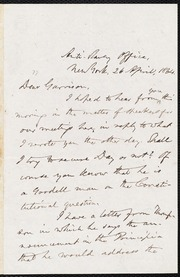 Anti-Slavery Office,
New York, 26 April, 184
Dear Garrison,
I hoped to hear from you this
morning in the matter of speakers for
our meeting &c, in reply to what
I wrote you the other day. Shall
I try to secure Day or not? Of
course you know that he is
a Goodell man on the Consti-
tutional question.
I have a letter from
son in which he says the an-
nouncement in the
that he would address the